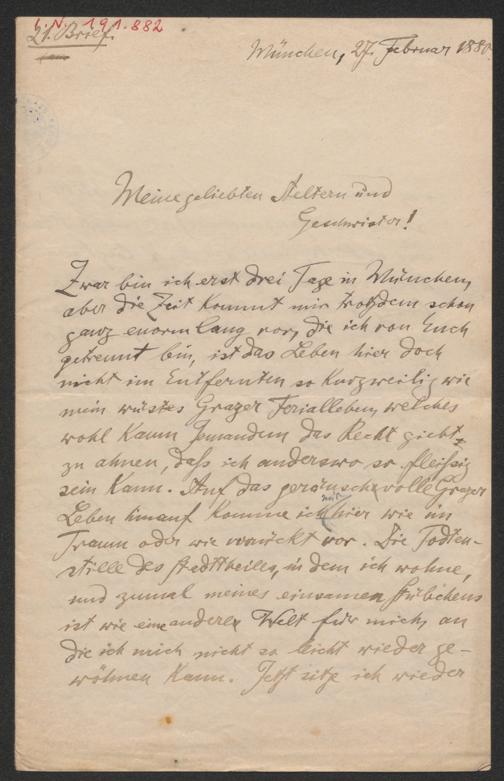 I.N. 191.882
21. Brief.
München, 27. Februar 188
Meine geliebten Aeltern und
Geschwister!
Zwar bin ich erst drei Tage in München,
aber die Zeit kommt mir trotzdem schon
ganz enorm lang vor, die ich von Euch
getrennt bin, ist das Leben hier doch
nicht im Entfernten so kurzweilig wie
mein wüstes Grazer Ferialleben, welches
wohl kaum Jemandem das Recht giebt
zu ahnen, daß ich anderswo so fleissig
sein kann. Auf das geräuschvolle Grazer
Leben hinauf komme ich mir hier wie im
Traum oder wie verrückt vor. Die Todten-
stille des Stadttheiles, in dem ich wohne,
und zumal meines einsamen Stübchens
ist wie eine andere Welt für mich, an
die ich mich nicht so leicht wieder ge-
wöhnen kann. Jetzt sitze ich wieder